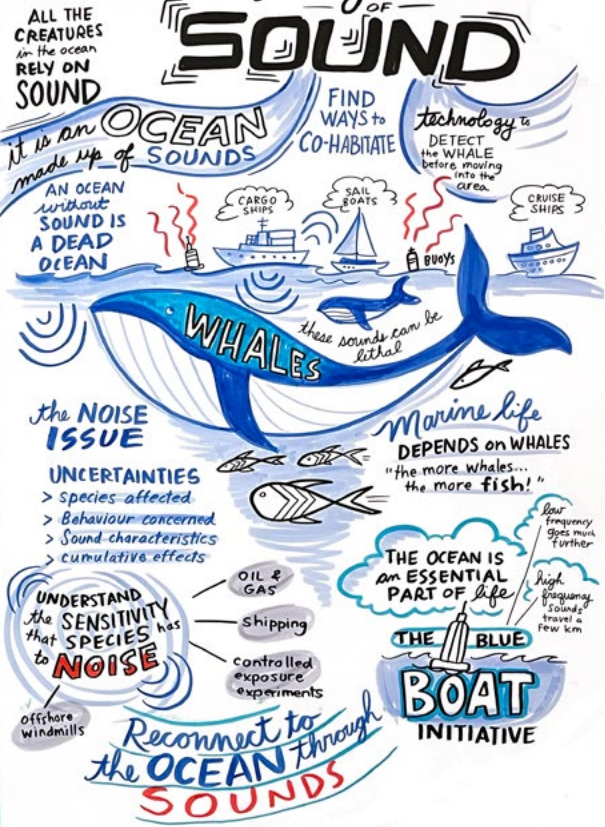 OF
SOUND
ALL THE
CREATURES
in the ocean
RELY ON
SOUND
it is an OCEAN
made up of SOUNDS
FIND
WAYS to
CO-HABITATE
technology to
DETECT
the WHALE
before moving
into the
area
AN OCEAN
without
SOUND IS
A DEAD
OCEAN
CARGO
SHIPS
SAIL
BOATS
BUOYS
CRUISE
SHIPS
WHALES
these sounds can be
lethal
the NOISE
ISSUE
UNCERTAINTIES
> Species affected
> Behaviour concerned
> Sound characteristics
> cumulative effects
Marine life
DEPENDS on WHALES
"the more whales...
the more fish!"
UNDERSTAND
the SENSITIVITY
that SPECIES has
to NOISE
OIL &
GAS
Shipping
controlled
exposure
experiments
offshore
windmills
THE OCEAN IS
an ESSENTIAL
PART OF life
low
frequency
goes much
further
high
frequency
sounds
travel a
few km
THE BLUE
BOAT
INITIATIVE
Reconnect to
the OCEAN through
SOUNDS